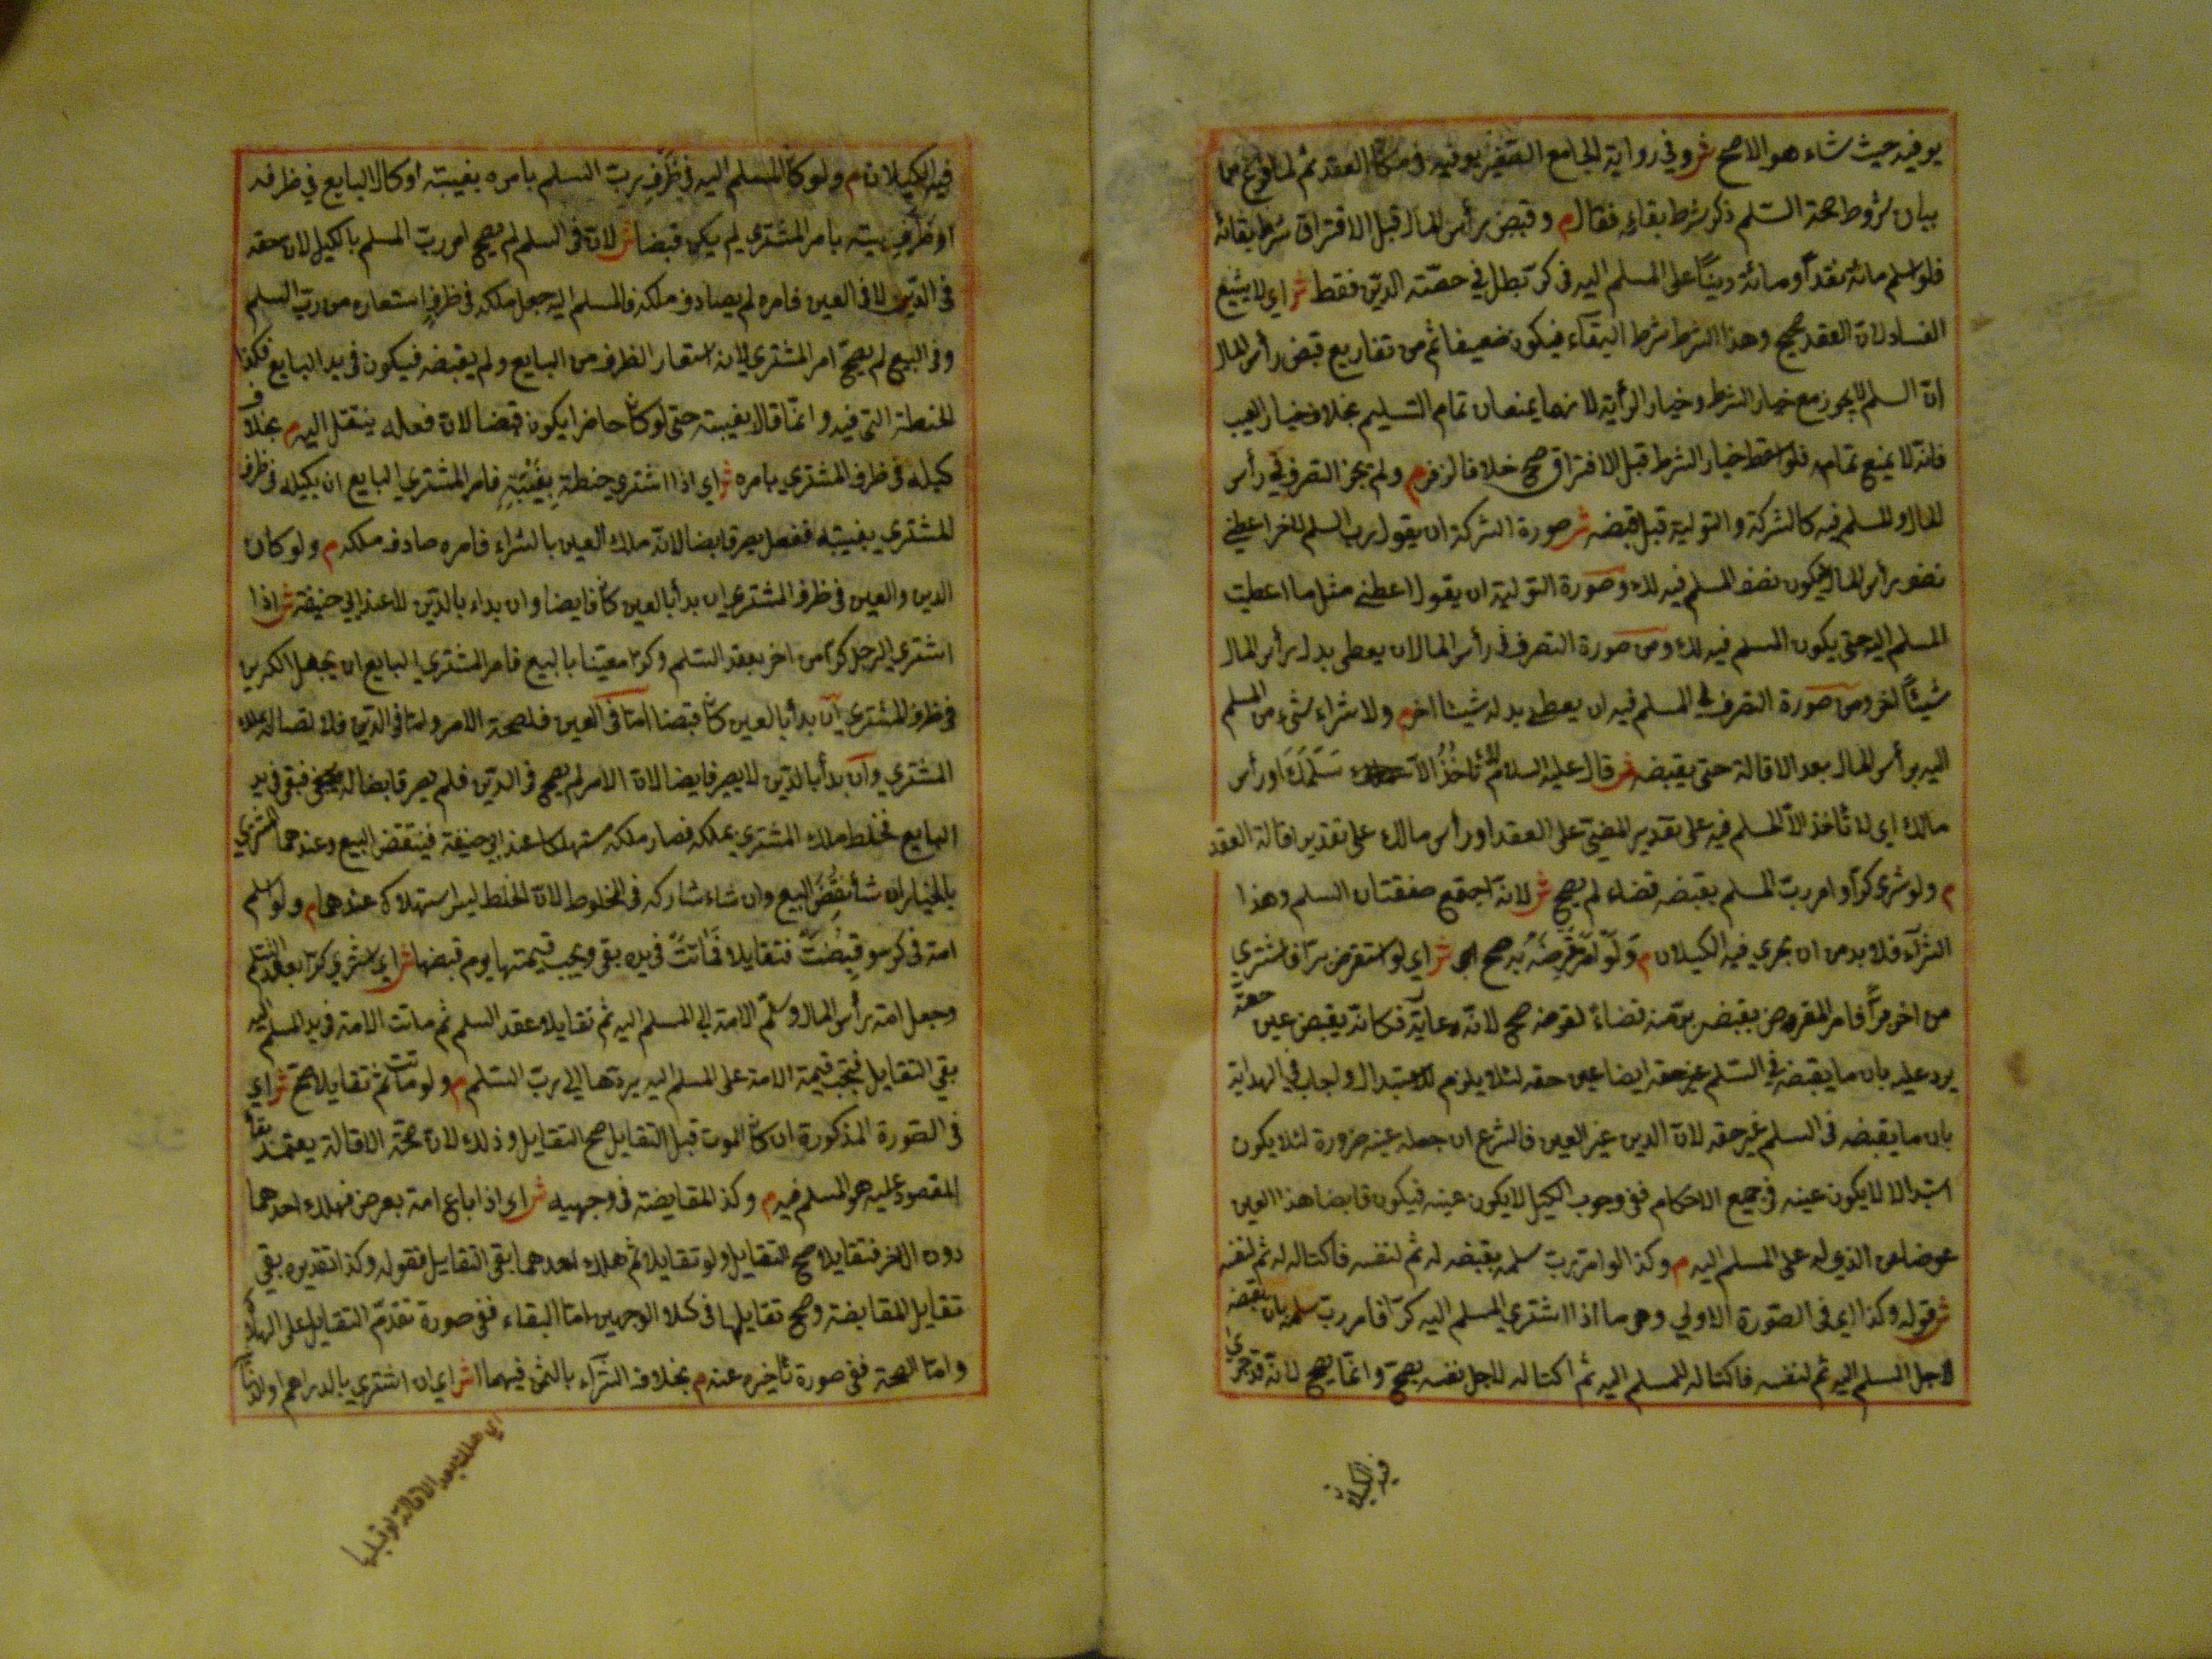 يوفيه حيث شاء هو الاصح ش وفي رواية الجامع الصغير يوفيه في مكان العقد ثم لما فرغ من
بيان شروط صحة السلم ذكر شرط بقاءه فقال م وقبض رأس المال قبل الافتراق شرط بقائه
فلو اسلم مائة نقدا ومائة دينا على المسلم اليه في كر بطل في حصة الدين فقط ش اي لا يشيع
الفساد لان العقد صحيح وهذا الشرط شرط البقاء فيكون ضعيفا ثم من تفاريع قبض رأس المال
ان السلم لا يجوز مع خيار الشرط وخيار الرأية لانهما يمنعان تمام التسليم بخلاف خيار العيب
فانه لا يمنع تمامه فلو اسقط خيار الشرط قبل الافتراق صح خلافا لزفر م ولم يجز التصرف في رأس
المال والمسلم فيه كالشركة والتولية قبل قبضه ش صورة الشركة ان يقول رب السلم لاخر اعطني
نصف رأس المال ليكون نصف المسلم فيه لك وصورة التولية ان يقول اعطني مثل ما اعطيت
المسلم اليه حتى يكون المسلم فيه لك ومن صورة التصرف في رأس المال ان يعطى بدل رأس المال
شيئا اخر ومن صورة التصرف في المسلم فيه ان يعطى بدله شيئا اخر م ولا شراء شيء من المسلم
اليه برأس المال بعد الاقالة حتى يقبضه ش قال عليه السلام لا تأخذ الا سلمك او رأس
مالك اي لا تأخذ الا المسلم فيه على تقدير المضي على العقد او رأس مالك على تقدير اقالة العقد
م ولو شرى كرا وامر رب السلم بقبضه قضاء لم يصح ش لانه اجتمع صفقتان السلم وهذا
الشراء فلا بد من ان يجري فيه الكيلان م ولو امر مقرضه به صح ش اي لو استقرض برا فاشترى
من اخر برا فامر المقرض بقبض بره منه قضاء لقرضه صح لانه عاية فكانه يقبض عين حقه
يرد عليه بان ما يقبضه في السلم عين حقه ايضا لئلا يلزم الاستبدال واجاب في الهداية
بان ما يقبضه في السلم غير حقه لان الدين غير العين فالشرع ان جعله عينه ضرورة لئلا يكون
استبدالا لا يكون عينه في جميع الاحكام ففي وجوب الكيل لا يكون عينه فيكون قابضا هذا العين
عوضا عن الذي له على المسلم اليه م وكذا لو امر رب سلمه بقبضه له ثم لنفسه فاكتاله له ثم لنفسه
ش قوله وكذا اي في الصورة الاولى وهي ما اذا اشترى المسلم اليه كرا فامر رب سلمه بان يقبضه
لاجل المسلم اليه ثم لنفسه فاكتاله للمسلم اليه ثم اكتاله لاجل نفسه يصح وانما يصح لانه قد جرى
فيه الكيلان
فيه الكيلان م ولو كال المسلم اليه في ظرف رب السلم بامره بغيبته او كال البايع في ظرفه
او ظرف بيته بامر المشتري لم يكن قبضا ش لان في السلم لم يصح امر رب السلم بالكيل لان حقه
في الدين لا في العين فامره لم يصادف ملكه فالمسلم اليه جعل ملكه في ظرف استعاره من رب السلم
وفي البيع لم يصح امر المشتري لانه استعار الظرف من البايع ولم يقبضه فيكون في يد البايع فكذا
الحنطة التي فيه وانما قال بغيبته حتى لو كان حاضرا يكون قبضا لان فعله ينتقل اليه م بخلاف
كيله في ظرف المشتري بامره ش اي اذا اشترى حنطة بعينها فامر المشتري البايع ان يكيله في ظرف
المشتري بغيبته ففعل يصير قابضا لانه ملك العين بالشراء فامره صادف ملكه م ولو كال
الدين والعين في ظرف المشتري ان بدأ بالعين كان قابضا وان بداء بالدين لا عند ابي حنيفة ش اذا
اشترى الرجل كرا من اخر بعقد السلم وكرا معينا بالبيع فامر المشتري البايع ان يجعل الكرين
في ظرف المشتري ان بدأ بالعين كان قبضا اما في العين فلصحة الامر واما في الدين فلاتصاله بملك
المشتري وان بدأ بالدين لا يصير قابضا لان الامر لم يصح في الدين فلم يصر قابضا له فبقي في يد
البايع فخلط ملك المشتري بملكه فصار ملكه مستهلكا عند ابي حنيفة فينتقض البيع وعندهما المشتري
بالخيار ان شاء نقض البيع وان شاء شاركه في المخلوط لان الخلط ليس استهلاك عندهما م ولو اسلم
امة في كر وقبضت فتقايلا فماتت في يده بقي ويجب قيمتها يوم قبضها ش اي اشترى كرا بعقد السلم
وجعل امة رأس المال وسلم الامة الى المسلم اليه ثم تقايلا عقد السلم ثم ماتت الامة في يد المسلم اليه
بقي التقايل فيجب قيمة الامة على المسلم اليه يردها الى رب السلم م ولو ماتت ثم تقايلا صح ش اي
في الصورة المذكورة ان كان الموت قبل التقايل صح التقايل وذلك لان صحة الاقالة يعتمد بقاء
المقصود عليه هو المسلم فيه م وكذا المقايضة في وجهيه ش اي اذا باع امة بعرض فهلك احدهما
دون الاخر فتقايلا صح التقايل ولو تقايلا ثم هلك احدهما بقي التقايل فقوله وكذا تقديره بقي
تقايل المقايضة وصح تقايلها في كلا الوجهين اما البقاء ففي صورة تقدم التقايل على الهلاك
واما الصحة ففي صورة تأخيره عنه م بخلاف الشراء بالثمن فيهما ش اي ان اشترى بالدراهم او الدنانير
اي هلك بعد الاقالة او قبلها